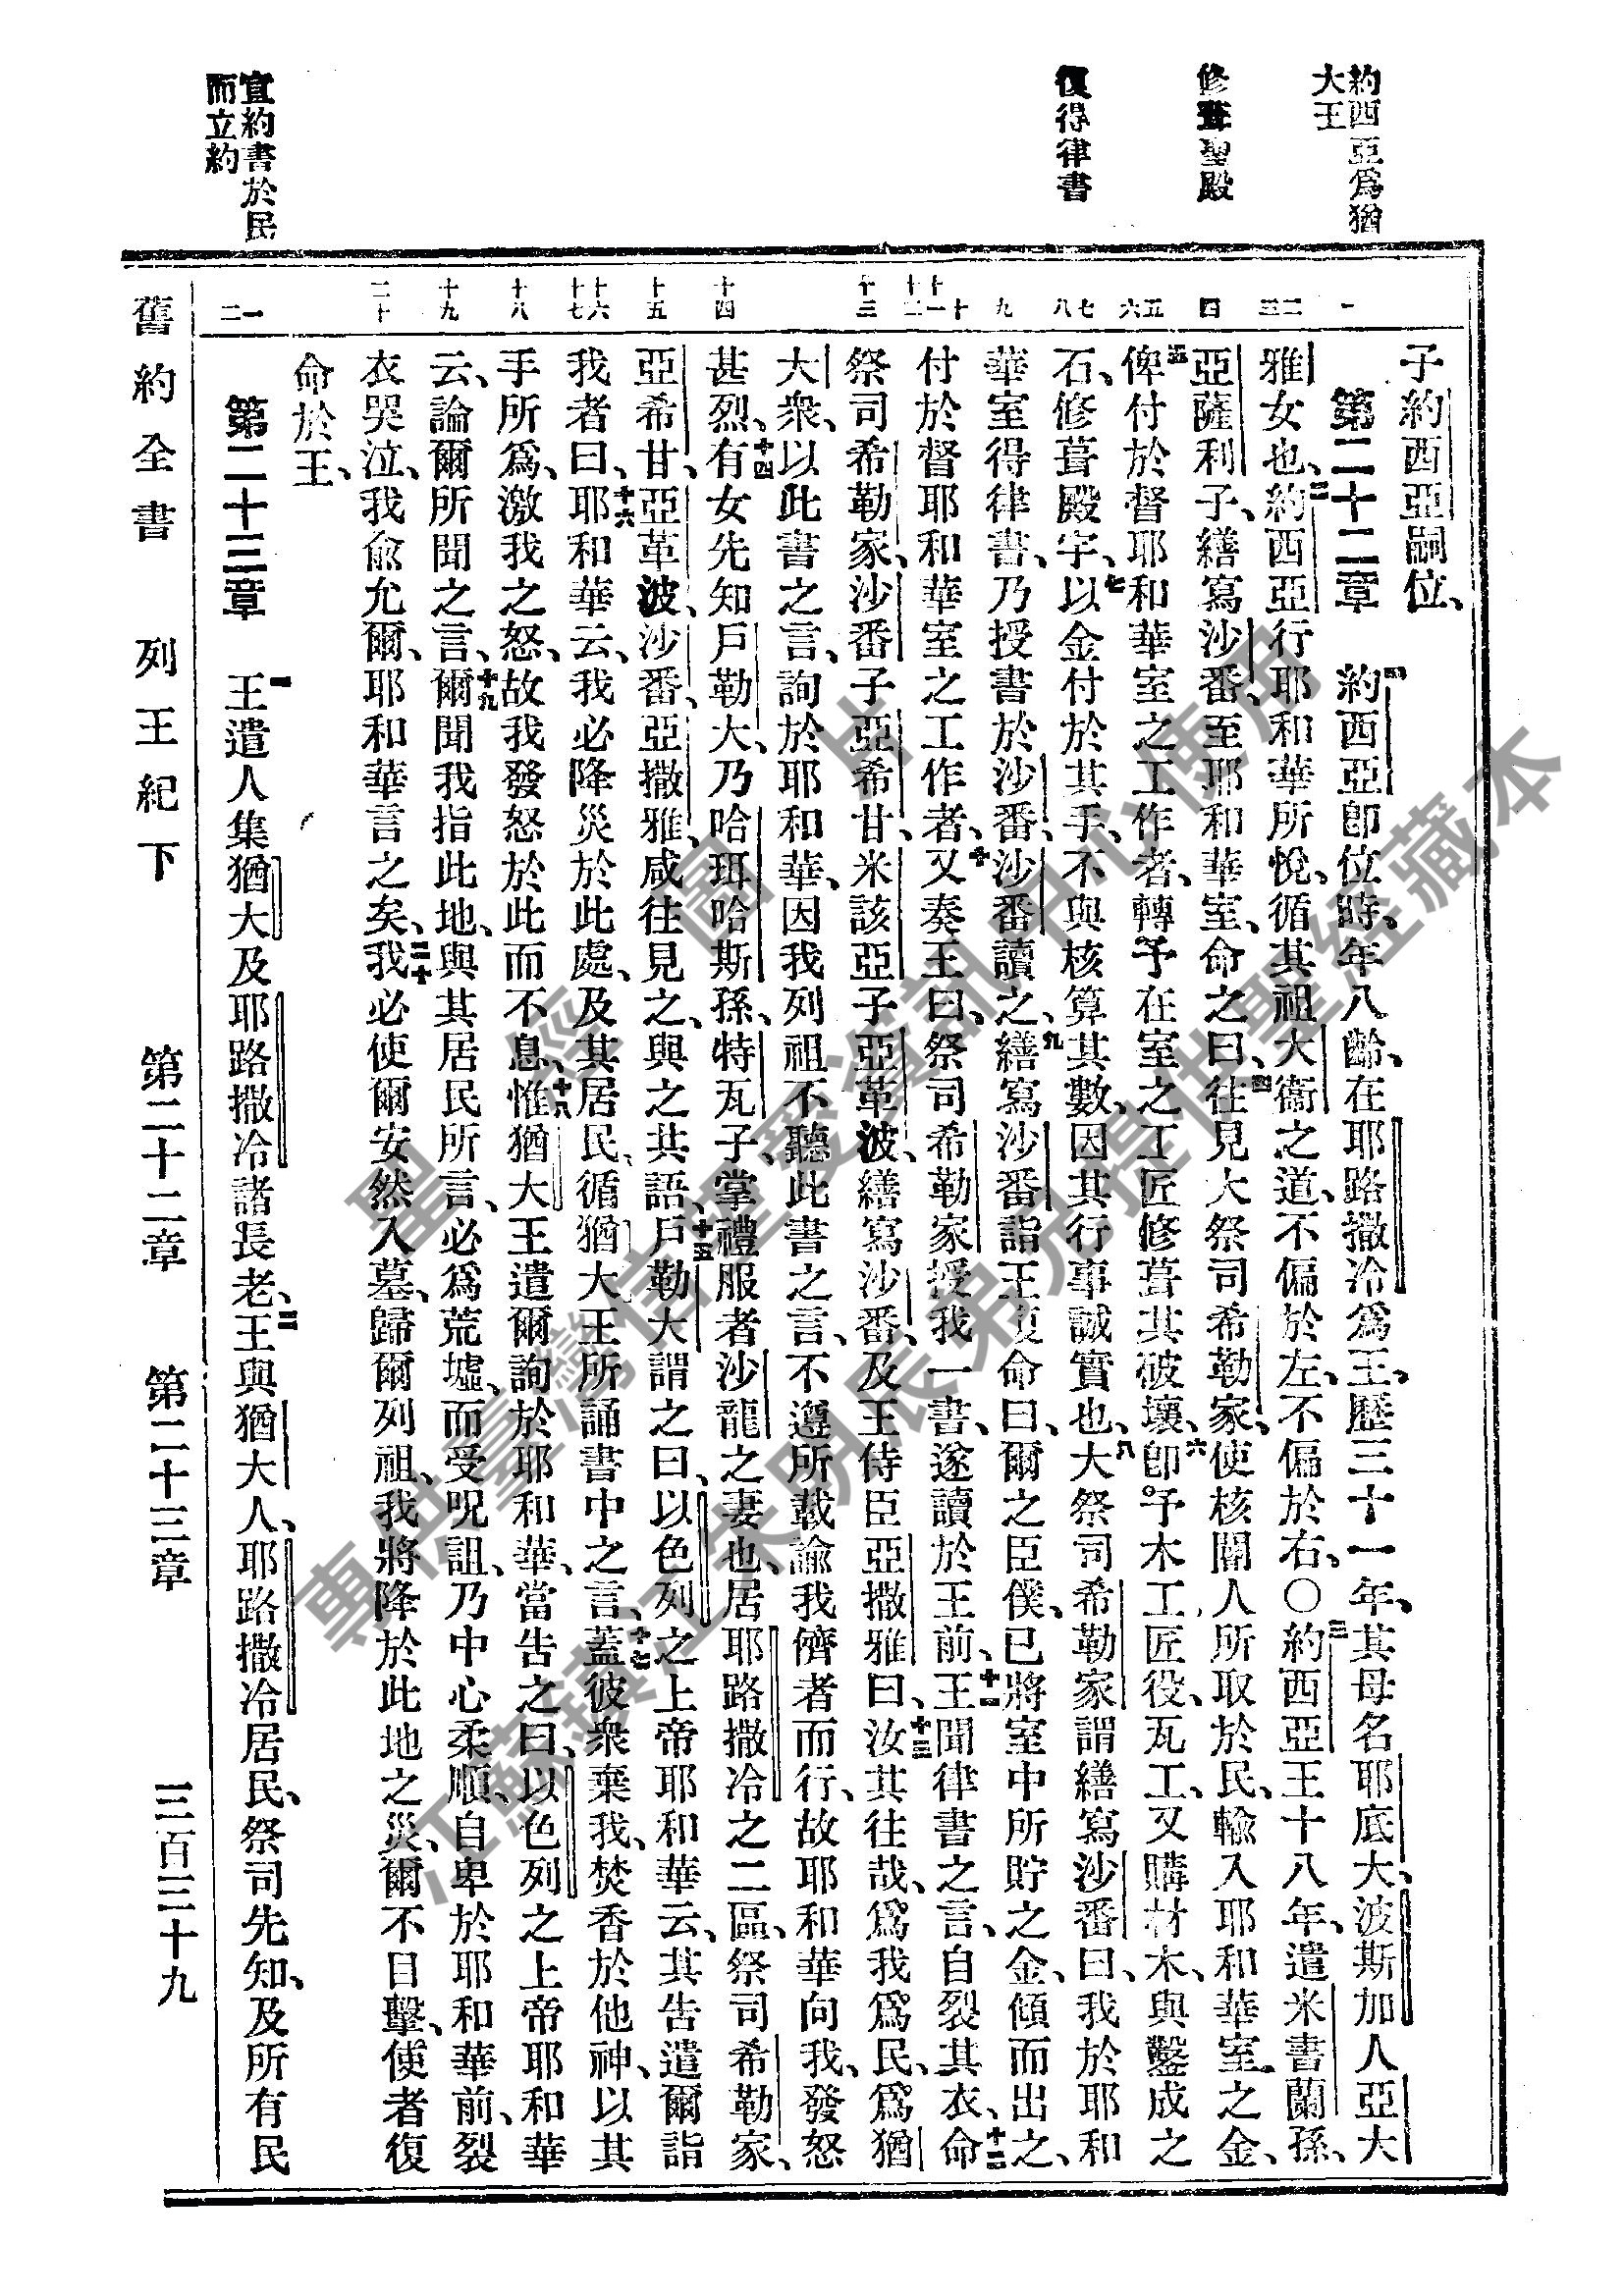 約西亞爲猶
大王
修葺聖殿
復得律書
宣約書於民
而立約
一
二
三
四
五
六
七
八
九
十
十一
十二
十三
十四
十五
十六
十七
十八
十九
二十
一
二
子約西亞嗣位、
第二十二章 一約西亞卽位時、年八齡、在耶路撒冷爲王、歷三十一年、其母名耶底大、波斯加人亞大
雅女也、二約西亞行耶和華所悅、循其祖大衞之道、不偏於左、不偏於右、○三約西亞王十八年、遣米書蘭孫、
亞薩利子、繕寫沙番、至耶和華室、命之曰、四往見大祭司希勒家、使核閽人所取於民、輸入耶和華室之金、
五俾付於督耶和華室之工作者、轉予在室之工匠、修葺其破壞、六卽予木工匠役、瓦工、又購材木、與鑿成之
石、修葺殿宇、七以金付於其手、不與核算其數、因其行事誠實也、八大祭司希勒家謂繕寫沙番曰、我於耶和
華室得律書、乃授書於沙番、沙番讀之、九繕寫沙番詣王復命曰、爾之臣僕、已將室中所貯之金、傾而出之、
付於督耶和華室之工作者、十又奏王曰、祭司希勒家授我一書、遂讀於王前、十一王聞律書之言、自裂其衣、十二命
祭司希勒家、沙番子亞希甘、米該亞子亞革波、繕寫沙番、及王侍臣亞撒雅曰、十三汝其往哉、爲我爲民、爲猶
大衆、以此書之言、詢於耶和華、因我列祖不聽此書之言、不遵所載諭我儕者而行、故耶和華向我、發怒
甚烈、十四有女先知戶勒大、乃哈珥哈斯孫、特瓦子、掌禮服者沙龍之妻也、居耶路撒冷之二區、祭司希勒家、
亞希甘、亞革波、沙番、亞撒雅、咸往見之、與之共語、十五戶勒大謂之曰、以色列之上帝耶和華云、其告遣爾詣
我者曰、十六耶和華云、我必降災於此處、及其居民、循猶大王所誦書中之言、十七蓋彼衆棄我、焚香於他神、以其
手所爲、激我之怒、故我發怒於此而不息、十八惟猶大王遣爾詢於耶和華、當告之曰、以色列之上帝耶和華
云、論爾所聞之言、十九爾聞我指此地、與其居民所言、必爲荒墟、而受呪詛、乃中心柔順、自卑於耶和華前、裂
衣哭泣、我兪允爾、耶和華言之矣、二十我必使爾安然入墓、歸爾列祖、我將降於此地之災、爾不目擊、使者復
命於王、
第二十三章 一王遣人集猶大及耶路撒冷諸長老、二王與猶大人、耶路撒冷居民、祭司先知、及所有民
舊約全書 列王紀下 第二十二章 第二十三章 三百三十九
聖經圖片
專供臺灣信望愛資訊中心使用
江蘇鎮江朱明辰弟兄提供聖經藏本